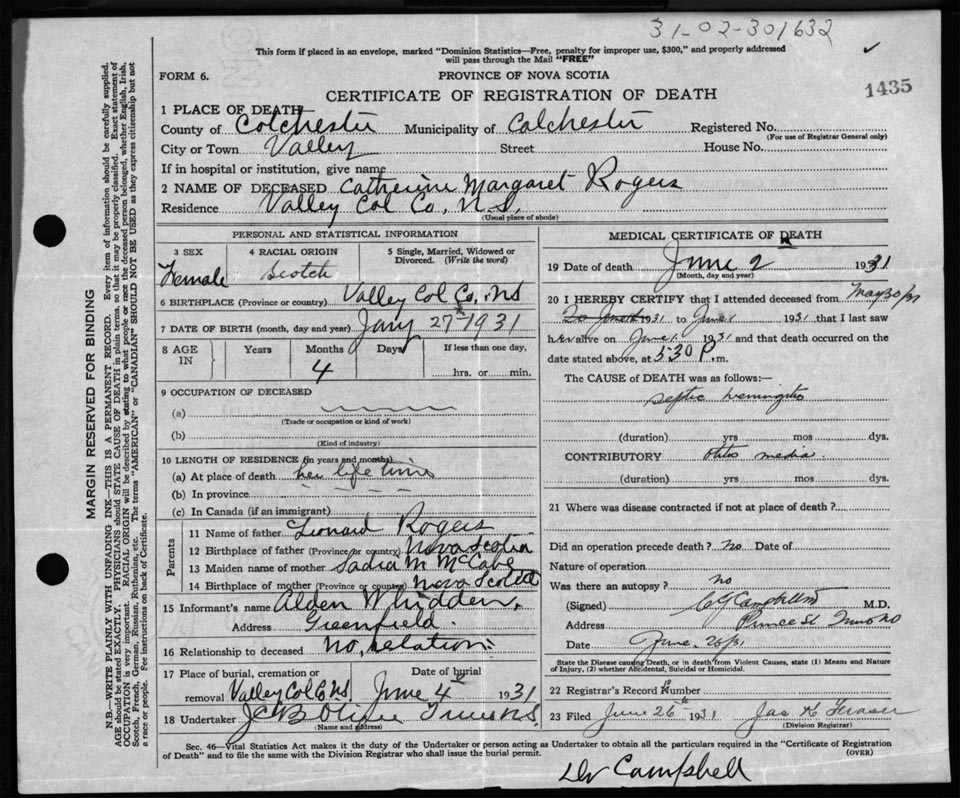 31-02-301632
This form if placed in an envelope, marked "Dominion Statistics—Free, penalty for improper use, $300," and properly addressed
will pass through the Mail "FREE"
FORM 6. PROVINCE OF NOVA SCOTIA
1435
CERTIFICATE OF REGISTRATION OF DEATH
1 PLACE OF DEATH
County of Colchester Municipality of Colchester Registered No.
(For use of Registrar General only)
City or Town Valley Street House No.
If in hospital or institution, give name
2 NAME OF DECEASED Catherine Margaret Rogers
Residence Valley Col Co, N.S.
(Usual place of abode)
PERSONAL AND STATISTICAL INFORMATION
3 SEX 4 RACIAL ORIGIN 5 Single, Married, Widowed or
Divorced. (Write the word)
Female Scotch
6 BIRTHPLACE (Province or country) Valley Col Co, NS
7 DATE OF BIRTH (month, day and year) Jany 27 1931
8 AGE IN Years Months Days If less than one day,
4 hrs. or min.
9 OCCUPATION OF DECEASED
(a)
(Trade or occupation or kind of work)
(b)
(Kind of industry)
10 LENGTH OF RESIDENCE (in years and months)
(a) At place of death her life time
(b) In province
(c) In Canada (if an immigrant)
Parents
11 Name of father Leonard Rogers
12 Birthplace of father (Province or country) Nova Scotia
13 Maiden name of mother Sadia M McCabe
14 Birthplace of mother (Province or country) Nova Scotia
15 Informant's name Alden Whidden,
Address Greenfield.
16 Relationship to deceased No, relation
17 Place of burial, cremation or Date of burial
removal Valley Col Co NS June 4 1931
18 Undertaker Truro NS.
(Name and address)
MEDICAL CERTIFICATE OF DEATH
19 Date of death June 2 1931
(Month, day and year)
20 I HEREBY CERTIFY that I attended deceased from May 30/31
1931 to June 1 1931 that I last saw
her alive on June 1 1931 and that death occurred on the
date stated above, at 5:30 P. m.
The CAUSE OF DEATH was as follows:—
Septic Meningitis
(duration) yrs mos dys.
CONTRIBUTORY Otitis media.
(duration) yrs mos dys.
21 Where was disease contracted if not at place of death?
Did an operation precede death? No Date of
Nature of operation
Was there an autopsy? no
(Signed) Campbell M.D.
Address Prince St Truro NS
Date June
State the Disease causing Death, or in death from Violent Causes, state (1) Means and Nature
of Injury, (2) whether Accidental, Suicidal or Homicidal.
22 Registrar's Record Number
23 Filed June 26th 1931 Jas K Fraser
(Division Registrar)
Sec. 46—Vital Statistics Act makes it the duty of the Undertaker or person acting as Undertaker to obtain all the particulars required in the "Certificate of Registration
of Death" and to file the same with the Division Registrar who shall issue the burial permit. (OVER)
Dr Campbell
MARGIN RESERVED FOR BINDING
N.B.—WRITE PLAINLY WITH UNFADING INK—THIS IS A PERMANENT RECORD. Every item of information should be carefully supplied.
AGE should be stated EXACTLY. PHYSICIANS should STATE CAUSE OF DEATH in plain terms, so that it may be properly classified. Exact statement of
OCCUPATION is very important. RACIAL ORIGIN will be described by stating to what people or race the deceased person belonged, whether English, Irish,
Scotch, French, German, Russian, Ruthenian, etc. The terms "AMERICAN" or "CANADIAN" SHOULD NOT BE USED as they express citizenship but not
a race or people. Fee instructions on back of Certificate.